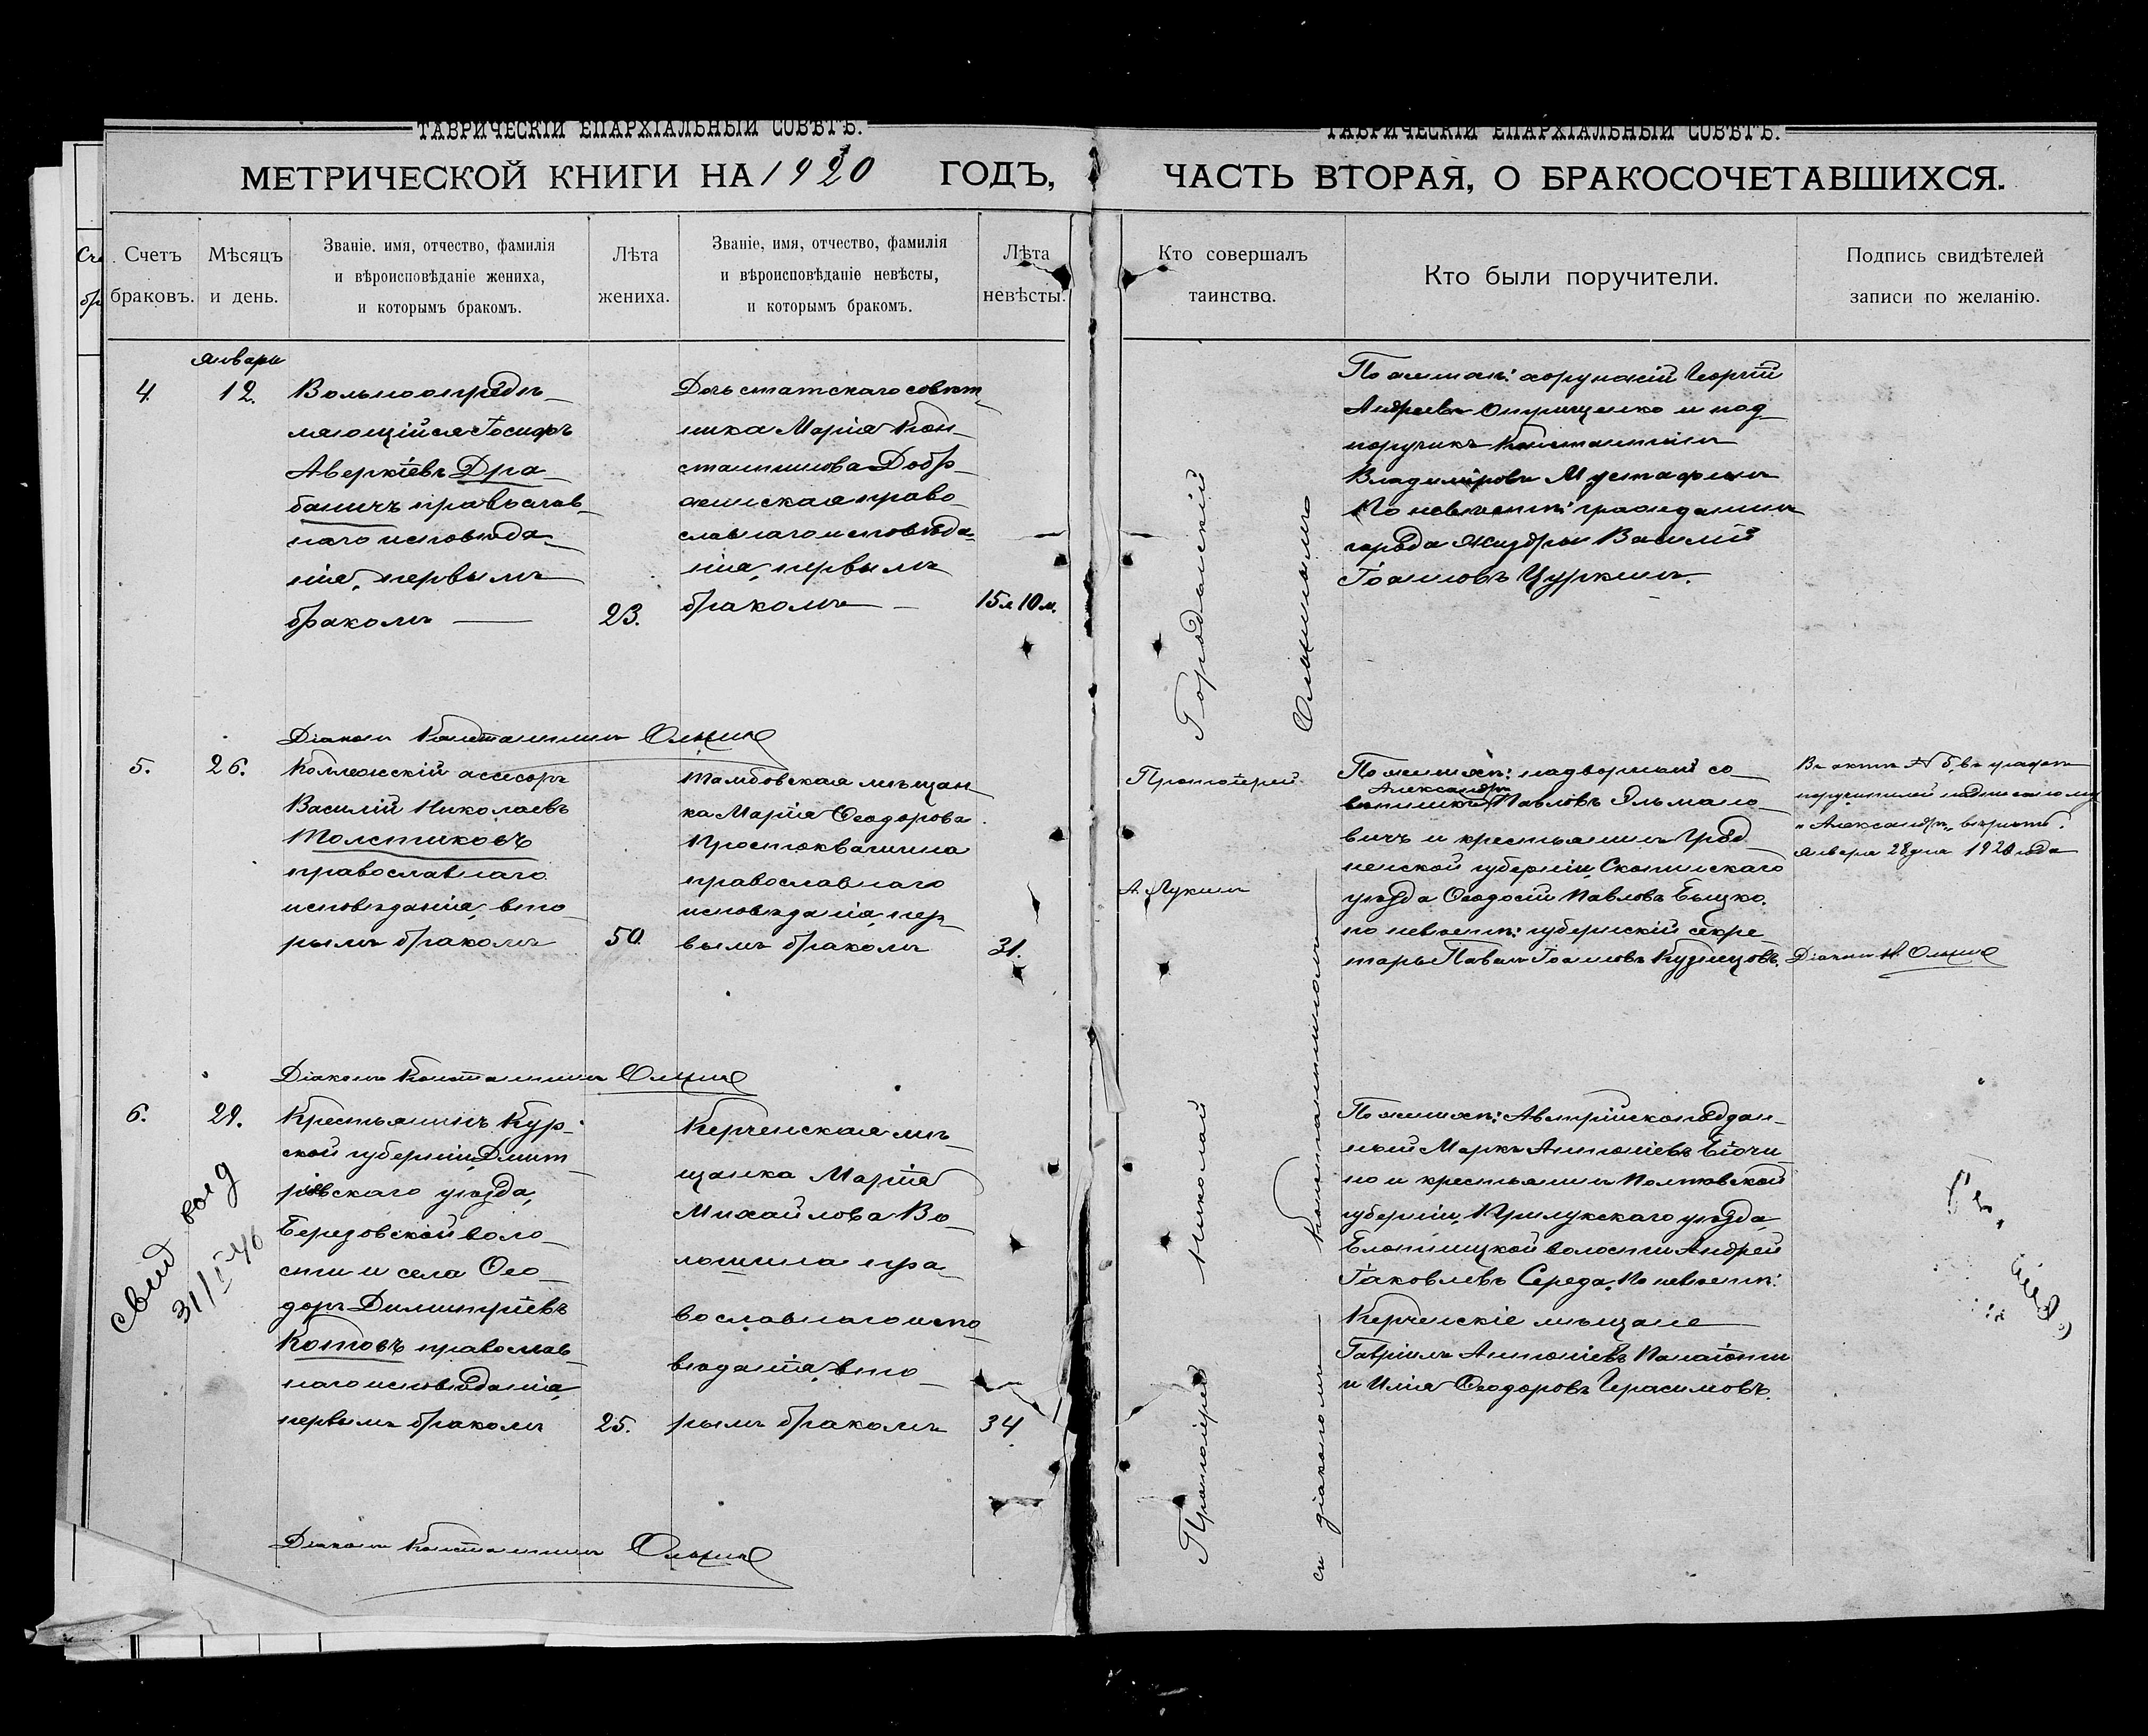 ТАВРИЧЕСКІЙ ЕПАРХІАЛЬНЫЙ СОВѢТЪ.
МЕТРИЧЕСКОЙ КНИГИ НА 1920 ГОДЪ,
Счетъ браковъ.
Мѣсяцъ и день.
Званіе, имя, отчество, фамилія
и вѣроисповѣданіе жениха,
и которымъ бракомъ.
Лѣта жениха.
Званіе, имя, отчество, фамилія
и вѣроисповѣданіе невѣсты,
и которымъ бракомъ.
Лѣта невѣсты.
ТАВРИЧЕСКІЙ ЕПАРХІАЛЬНЫЙ СОВѢТЪ.
ЧАСТЬ ВТОРАЯ, О БРАКОСОЧЕТАВШИХСЯ.
Кто совершалъ
таинство.
Кто были поручители.
Подпись свидѣтелей
записи по желанію.
4.
Января
12.
Вольноопредѣ-
ляющійся Іосифъ
Аверкіевъ Дра-
баничъ православ-
наго исповѣда-
нія, первымъ
бракомъ
23.
Дочь статскаго совѣт-
ника Марія Кон-
стантинова Добр-
жинская право-
славнаго исповѣда-
нія, первымъ
бракомъ
15 л 10 м.
По женихѣ: хорунжій Георгій
Андреевъ Онуприенко и под-
поручикъ Константинъ
Владиміровъ Мустафинъ
По невѣстѣ: гражданинъ
города Жиздры Василій
Іоанновъ Цуркинъ.
Діаконъ Константинъ Ольшов
5.
26.
Коллежскій асесоръ
Василій Николаевъ
Толстиковъ
православнаго
исповѣданія, вто-
рымъ бракомъ
50.
Тамбовская мѣщан-
ка Марія Ѳеодорова
Простоквашина
православнаго
исповѣданія, пер-
вымъ бракомъ
31.
Протоіерей
А Лукинъ
По женихѣ: надворный со-
Александръ
вѣтникъ Павловъ Эльмано-
вичъ и крестьянинъ Грод-
ненской губерніи,
уѣзда Ѳеодосій Павловъ Быцко.
по невѣстѣ: губернскій секре-
тарь Павелъ Іоанновъ Кузнецовъ.
Въ актѣ № 5, въ графѣ
поручителей надписанному
"Александръ" вѣрить.
Января 28 дня 1920 года
Діаконъ К.
Діаконъ Константинъ
6.
29.
Крестьянинъ Кур-
ской губерніи, Дмит-
ріевскаго уѣзда,
Березовской воло-
сти и села Ѳео-
доръ Димитріевъ
Котовъ православ-
наго исповѣданія,
первымъ бракомъ
25.
Керченская мѣ-
щанка Марія
Михайлова Во-
лошина пра-
вославнаго испо-
вѣданія, вто-
рымъ бракомъ
34
По женихѣ: Австрійско-поддан-
ный Маркъ Антоніевъ Біочи-
но и крестьянинъ Полтавской
губерніи, Прилукскаго уѣзда
волости Андрей
Іаковлевъ Середа, По невѣстѣ:
Керченскіе мѣщане
Гавріилъ Антоніевъ Панаіоти
и Илія Ѳеодоровъ Герасимовъ.
Діаконъ Константинъ
свид выд
31/I 46
Протоіерей Николай Городянскій
съ діакономъ Константиномъ